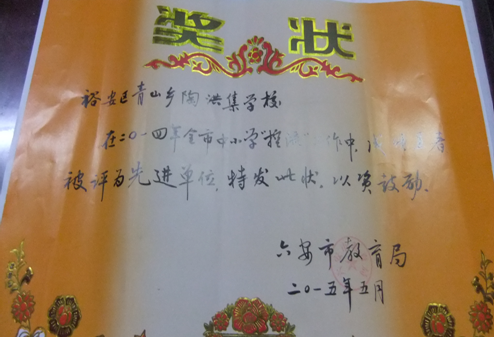 奖状
裕安区青山乡陶洪集学校:
在二〇一四年全市中小学"控流"工作中,成绩显著
被评为先进单位,特发此状,以资鼓励。
六安市教育局
二〇一五年五月